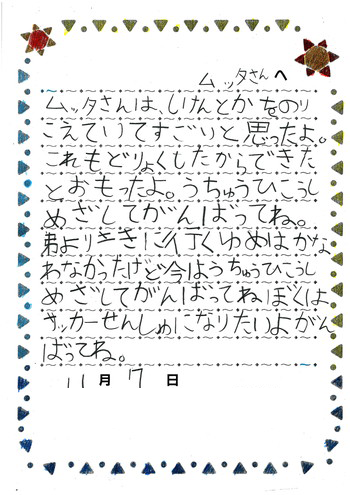 ムッタさんへ
ムッタさんは、しけんとかをのり
こえていてすごいと思ったよ。
これもどりょくしたからできた
とおもったよ。うちゅうひこうし
めざしてがんばってね。
弟より先に行くゆめはかな
わなかったけど今はうちゅうひこうし
めざしてがんばってねぼくは
サッカーせんしゅになりたいよがん
ばってね。
11月17日